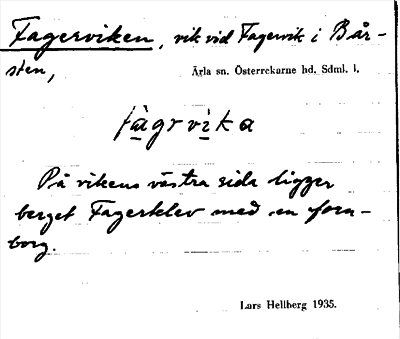 Fagerviken, vik vid Fagervik i Bår-
sten,
Ärla sn. Österrekarne hd. Sdml. l.
fàgrvìka
På vikens västra sida ligger
berget Fagerklev med en forn-
borg.
Lars Hellberg 1935.